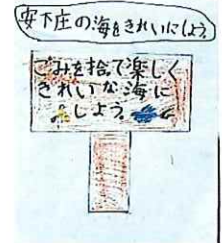 安下庄の海をきれいにしよう
ごみを捨てて楽しく
きれいな海に
しよう。